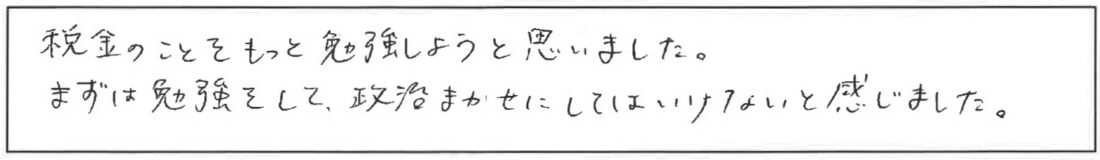 税金のことをもっと勉強しようと思いました。
まずは勉強をして、政治まかせにしてはいけないと感じました。